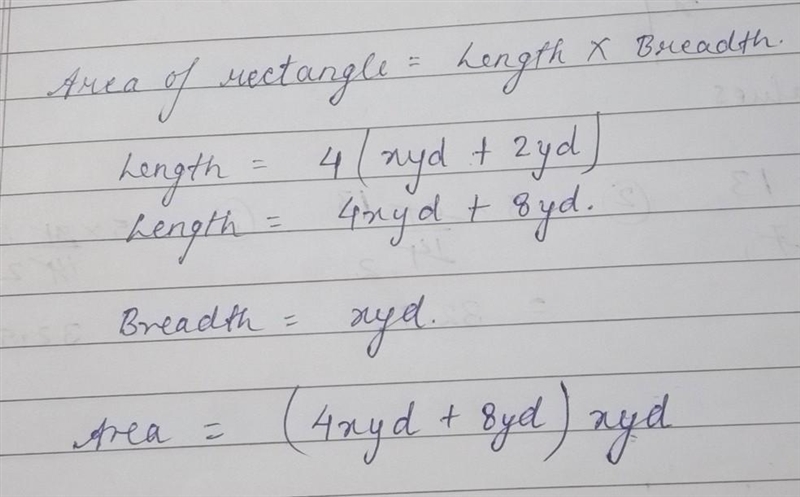 Area of rectangle = Length × Breadth.
Length = 4(xyd + 2yd)
Length = 4xyd + 8yd.
Breadth = xyd.
Area = (4xyd + 8yd) xyd